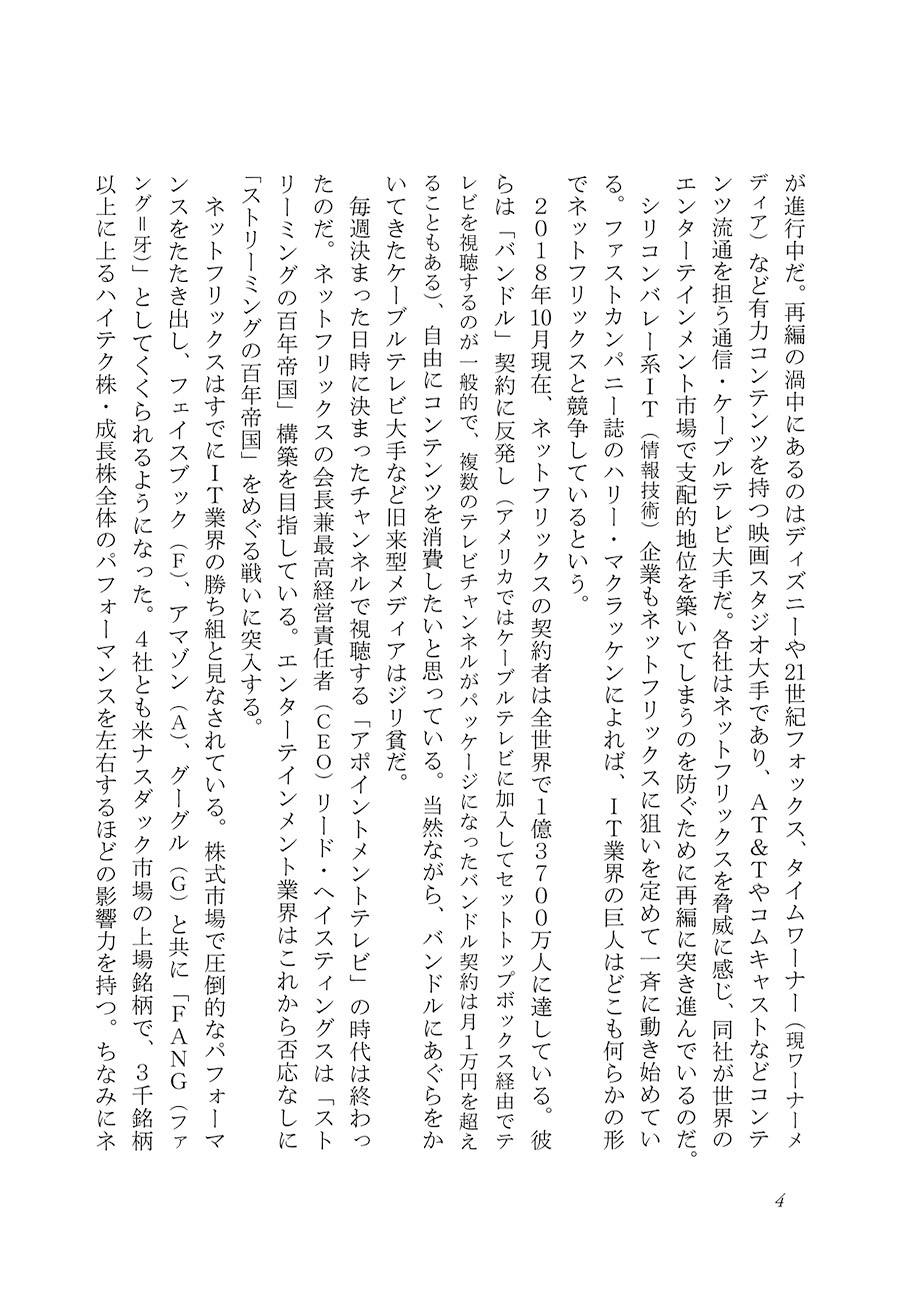 が進行中だ。再編の渦中にあるのはディズニーや21世紀フォックス、タイムワーナー（現ワーナーメ
ディア）など有力コンテンツを持つ映画スタジオ大手であり、AT&Tやコムキャストなどコンテ
ンツ流通を担う通信・ケーブルテレビ大手だ。各社はネットフリックスを脅威に感じ、同社が世界の
エンターテインメント市場で支配的地位を築いてしまうのを防ぐために再編に突き進んでいるのだ。
　シリコンバレー系IT（情報技術）企業もネットフリックスに狙いを定めて一斉に動き始めてい
る。ファストカンパニー誌のハリー・マクラッケンによれば、IT業界の巨人はどこも何らかの形
でネットフリックスと競争しているという。
　2018年10月現在、ネットフリックスの契約者は全世界で1億3700万人に達している。彼
らは「バンドル」契約に反発し（アメリカではケーブルテレビに加入してセットトップボックス経由でテ
レビを視聴するのが一般的で、複数のテレビチャンネルがパッケージになったバンドル契約は月1万円を超え
ることもある）、自由にコンテンツを消費したいと思っている。当然ながら、バンドルにあぐらをか
いてきたケーブルテレビ大手など旧来型メディアはジリ貧だ。
　毎週決まった日時に決まったチャンネルで視聴する「アポイントメントテレビ」の時代は終わっ
たのだ。ネットフリックスの会長兼最高経営責任者（CEO）リード・ヘイスティングスは「スト
リーミングの百年帝国」構築を目指している。エンターテインメント業界はこれから否応なしに
「ストリーミングの百年帝国」をめぐる戦いに突入する。
　ネットフリックスはすでにIT業界の勝ち組と見なされている。株式市場で圧倒的なパフォーマ
ンスをたたき出し、フェイスブック（F）、アマゾン（A）、グーグル（G）と共に「FANG（ファ
ング＝牙）」としてくくられるようになった。4社とも米ナスダック市場の上場銘柄で、3千銘柄
以上に上るハイテク株・成長株全体のパフォーマンスを左右するほどの影響力を持つ。ちなみにネ
4